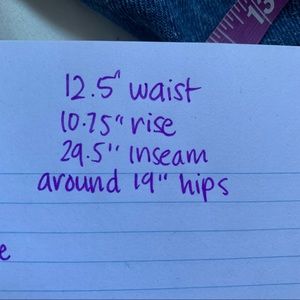 12.5" waist
10.75" rise
29.5" inseam
around 19" hips
e